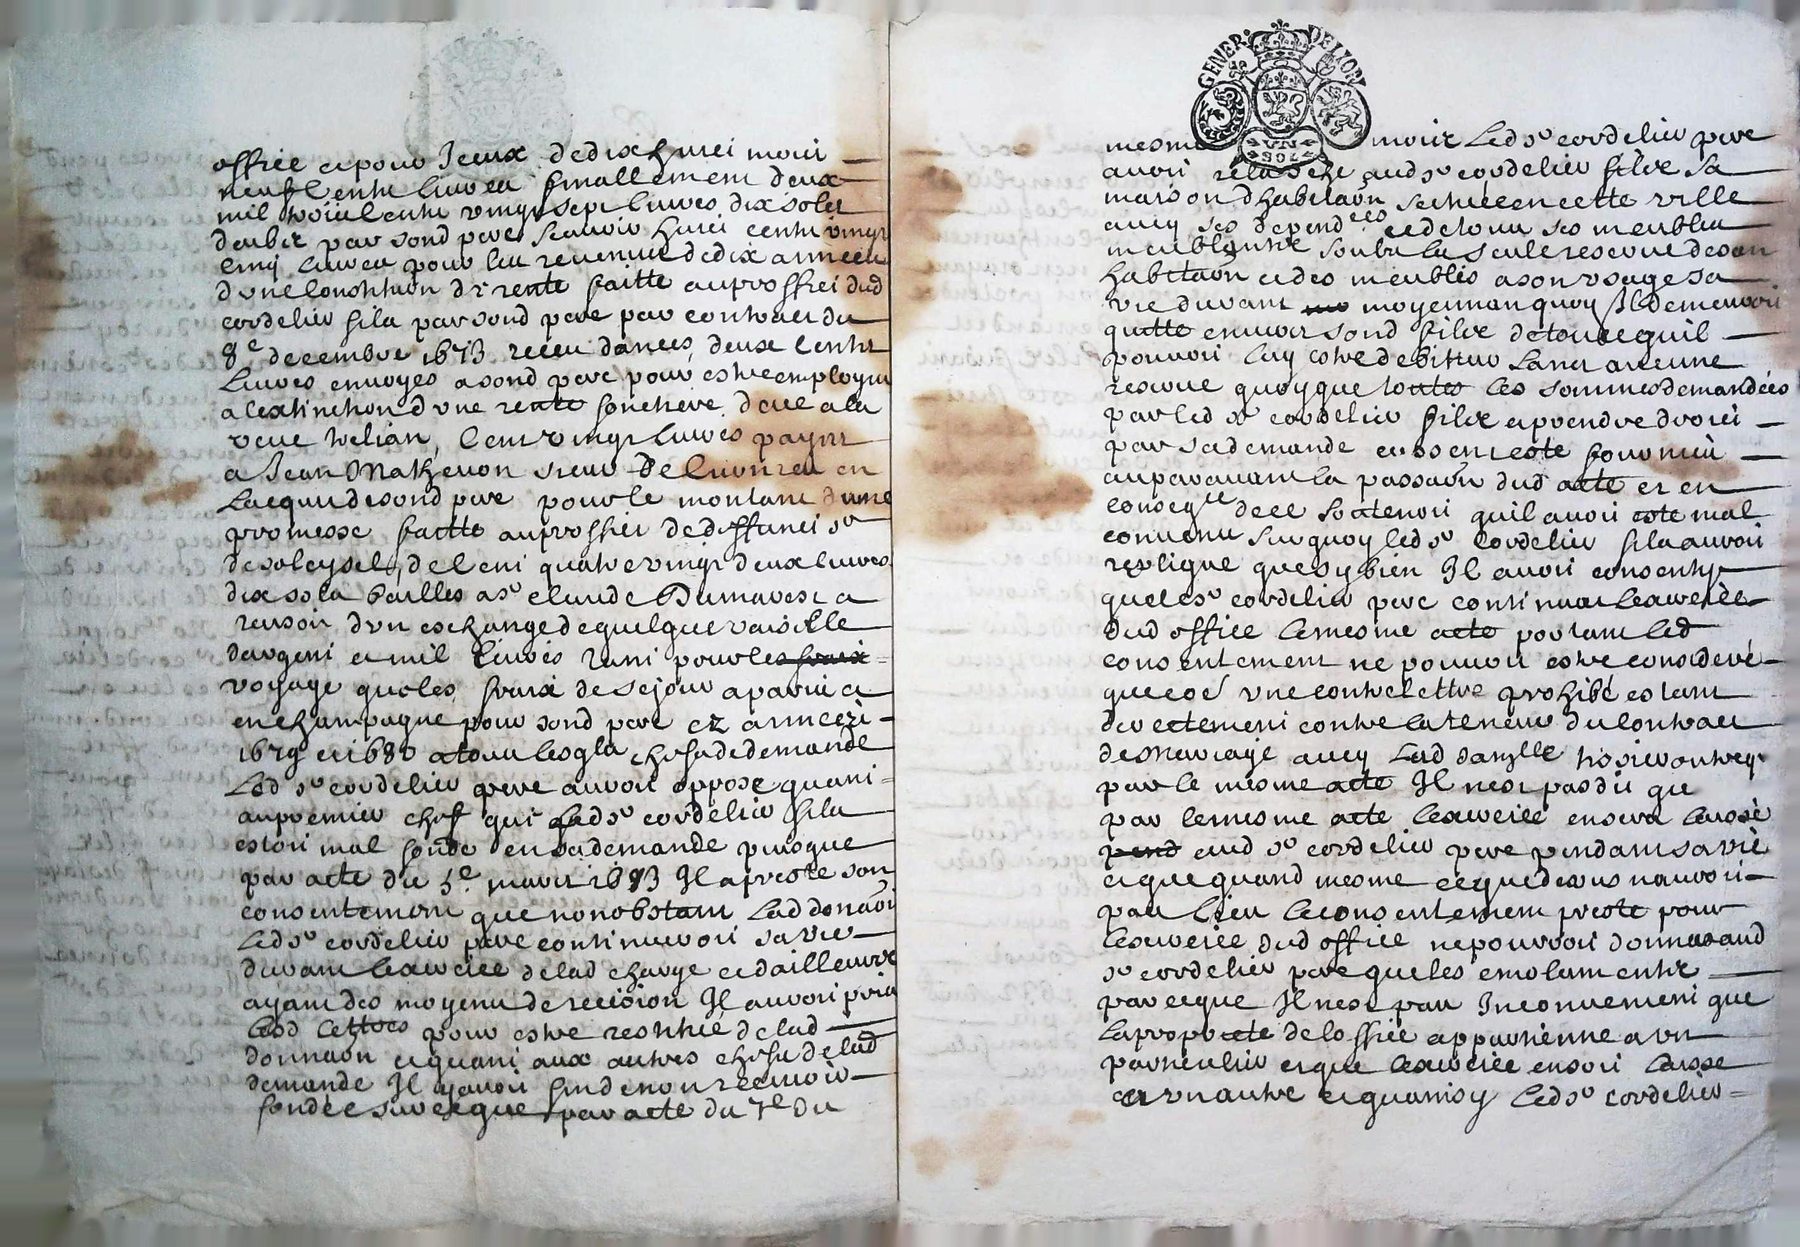 office et pour Iceux de dix huict mois
neuf cents livres finallement deux
mil trois cents vingt sept livres dix sols
deubs par sond pere scavoir huict cents vingt
cinq livres pour les revenus de dix années
d'une constitution de rente faitte au proffict dud
cordelier fils par sond pere par contract du
8e decembre 1673 receu dances, deux cents
livres envoyes a sond pere pour estre employes
a lextinction d'une rente fonciere deue a la
veue helian, cent vingt livres payes
a Jean Mathevon sieur de en
lacquit de sond pere pour le montant d'une
promesse faitte au proffict de deffunct sr
de soleysel, de cent quatre vingt deux livres
dix sols bailles a sr claude Dumarest a
raison d'un eschange de quelque vaisselle
dargent et mil livres tant pour les frais
voyage que les fraix de sejour a paris et
en champagne pour sond pere ez années
1679 et 1680 a tous lesqls chefs de demande
Led sr cordelier pere auroit opposé quant
au premier chef que led sr cordelier fils
estoit mal fondé en sa demande puisque
par acte du 5e mars 1673 Il a presté son
consentement que nonobstant lad donaon
led sr cordelier pere continueroit sa vie
durant lexercice de lad charge et dailleurs
ayant des moyens de recision Il auroit pris
lesd lettres pour estre restitué de lad
donnaon et quant aux autres chefs de lad
demande Il y avoit fin de non recevoir
fondée sur ce que par acte du 7e du
mesme mois led sr cordelier pere
avoit relasché aud sr cordelier fils sa
maison dhabitaon scituée en cette ville
avec ses dependces et de tous ses meubles
meublants soubs la seule reserve de son
habitaon et des meubles a son usage sa
vie durant moyennant quoy Il demeuroit
quitte envers sond fils de tout ce quil
pouvoit luy estre debiteur sans aucune
reserve quoyque toutes les sommes demandées
par led sr cordelier fils et prendre droict
par sa demande eussent esté fournies
auparavant la passaon dud acte et en
conseqce de ce soutenoit quil avoit esté mal
convenu sur quoy led sr cordelier fils auroit
repliqué que sy bien Il avoit consenty
que le sr cordelier pere continuat lexercice
dud office le mesme acte portant led
consentement ne pouvoit estre consideré
que coe une contrelettre prohibé estant
directement contre la teneur du contract
de mariage avec lad damlle
par le mesme acte Il nest pas dit que
par le mesme acte lexercice en sera laissé
pend aud sr cordelier pere pendant sa vie
et que quand mesme ce que dessus nauroit
pas lieu le consentement presté pour
lexercice dud office ne pouvoit donner aud
sr cordelier pere que les emoluments
parce que Il nest pas Inconvenient que
la proprieté de loffice appartienne a un
particulier et que lexercice en soit laissé
a un autre et quainsy led sr cordelier
GENER DE LION
VN
SOL